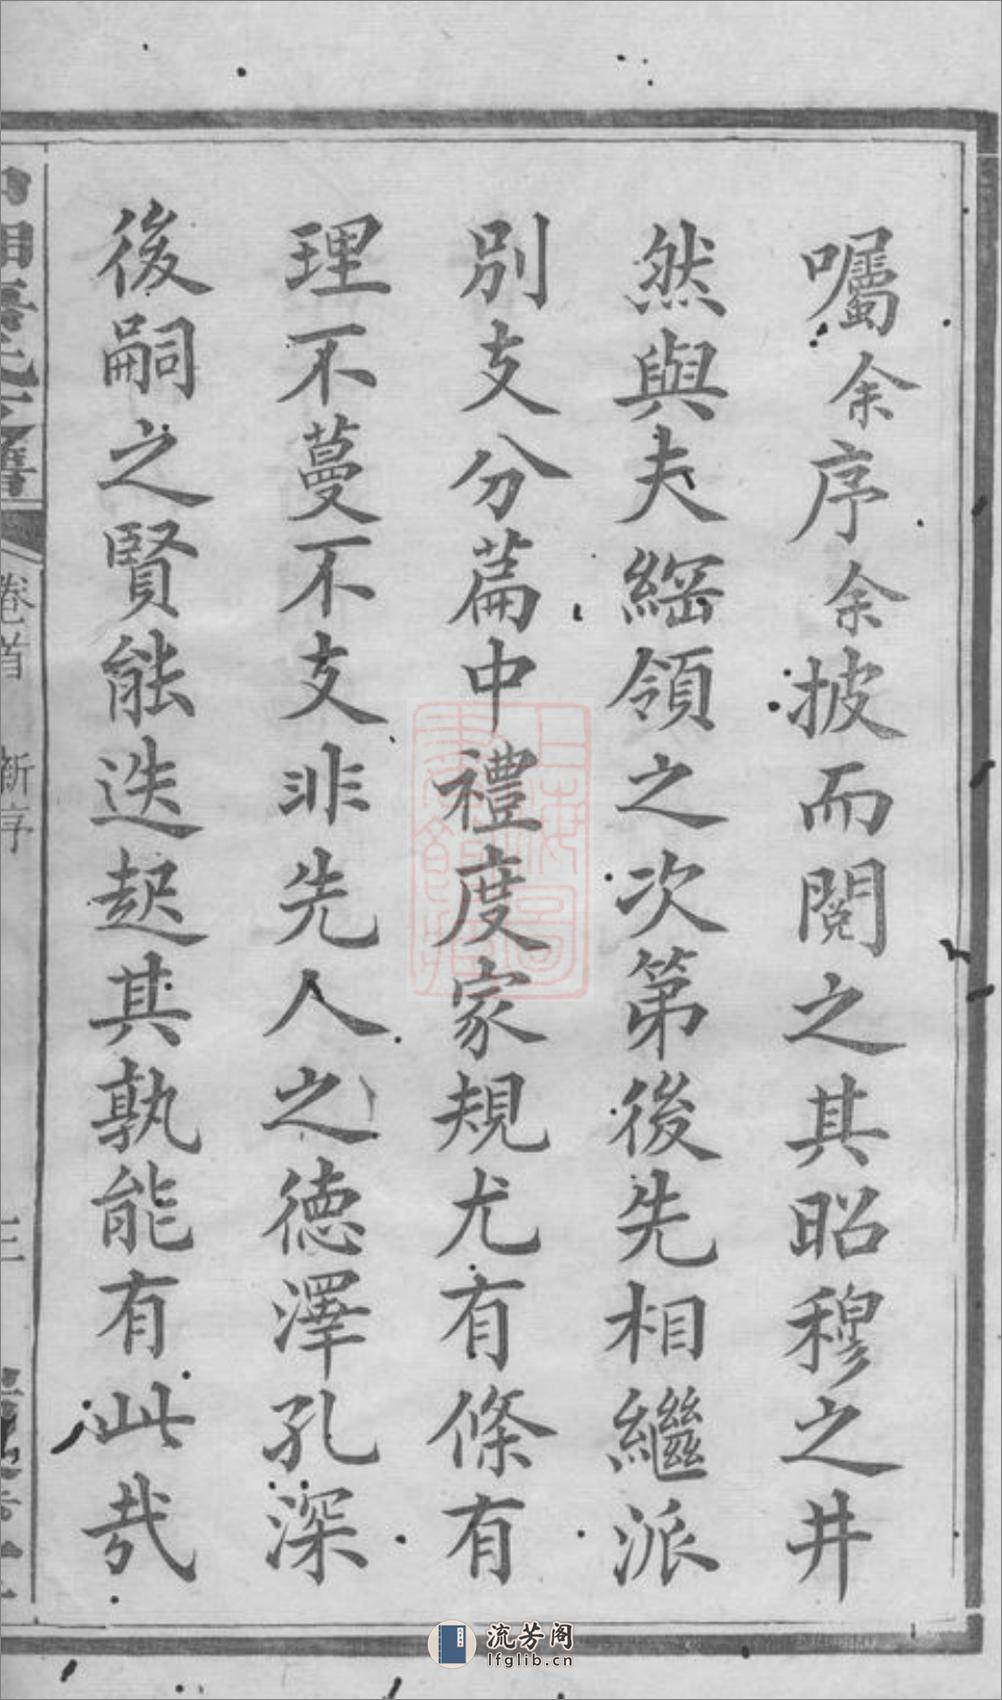 囑余序余披而閱之其昭穆之井
然與夫綱領之次第後先相繼派
別支分篇中禮度家規尤有條有
理不蔓不支非先人之德澤孔深
後嗣之賢能迭起其孰能有此哉
卷首 新序 三
流芳阁
lfglib.cn